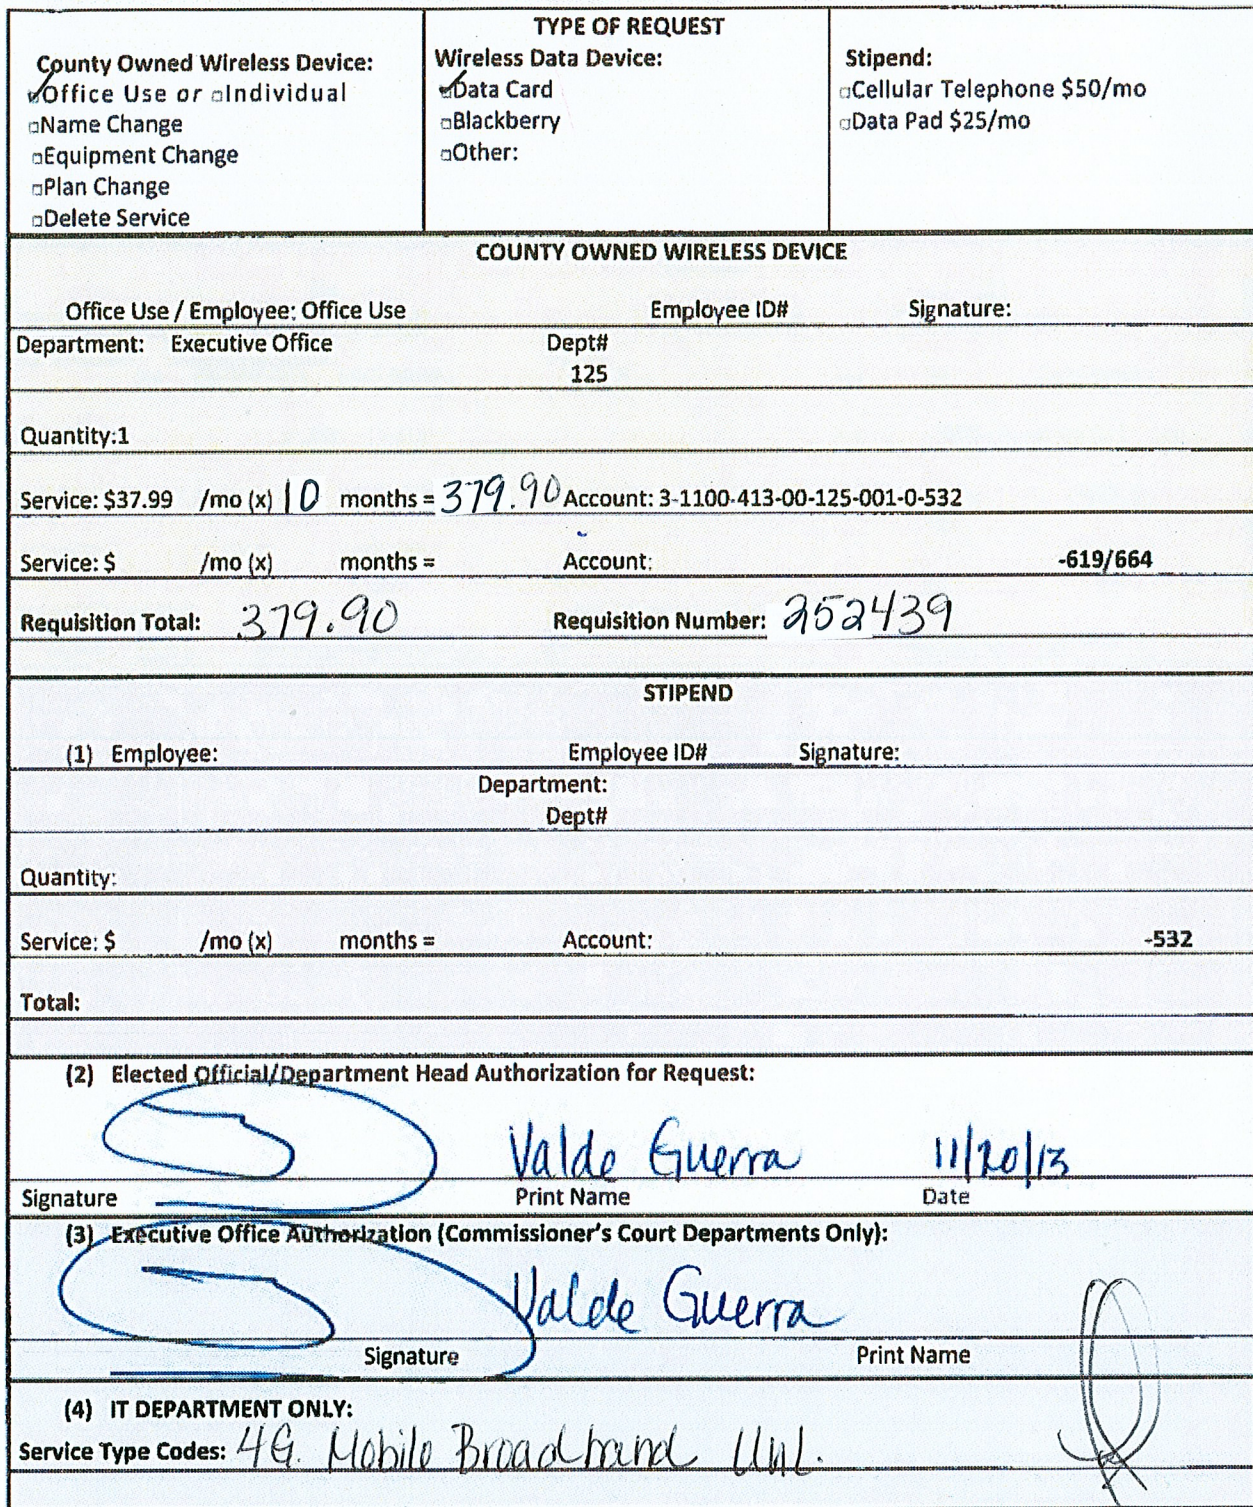 TYPE OF REQUEST
County Owned Wireless Device:
Office Use or Individual
Name Change
Equipment Change
Plan Change
Delete Service
Wireless Data Device:
Data Card
Blackberry
Other:
Stipend:
Cellular Telephone $50/mo
Data Pad $25/mo
COUNTY OWNED WIRELESS DEVICE
Office Use / Employee: Office Use Employee ID# Signature:
Department: Executive Office Dept#
125
Quantity:1
Service: $37.99 /mo (x) 10 months = 379.90 Account: 3-1100-413-00-125-001-0-532
Service: $ /mo (x) months = Account: -619/664
Requisition Total: 379.90 Requisition Number: 252439
STIPEND
(1) Employee: Employee ID# Signature:
Department:
Dept#
Quantity:
Service: $ /mo (x) months = Account: -532
Total:
(2) Elected Official/Department Head Authorization for Request:
Valde Guerra 11/20/13
Signature Print Name Date
(3) Executive Office Authorization (Commissioner's Court Departments Only):
Valde Guerra
Signature Print Name
(4) IT DEPARTMENT ONLY:
Service Type Codes: 4G. Mobile Broadband Unl.